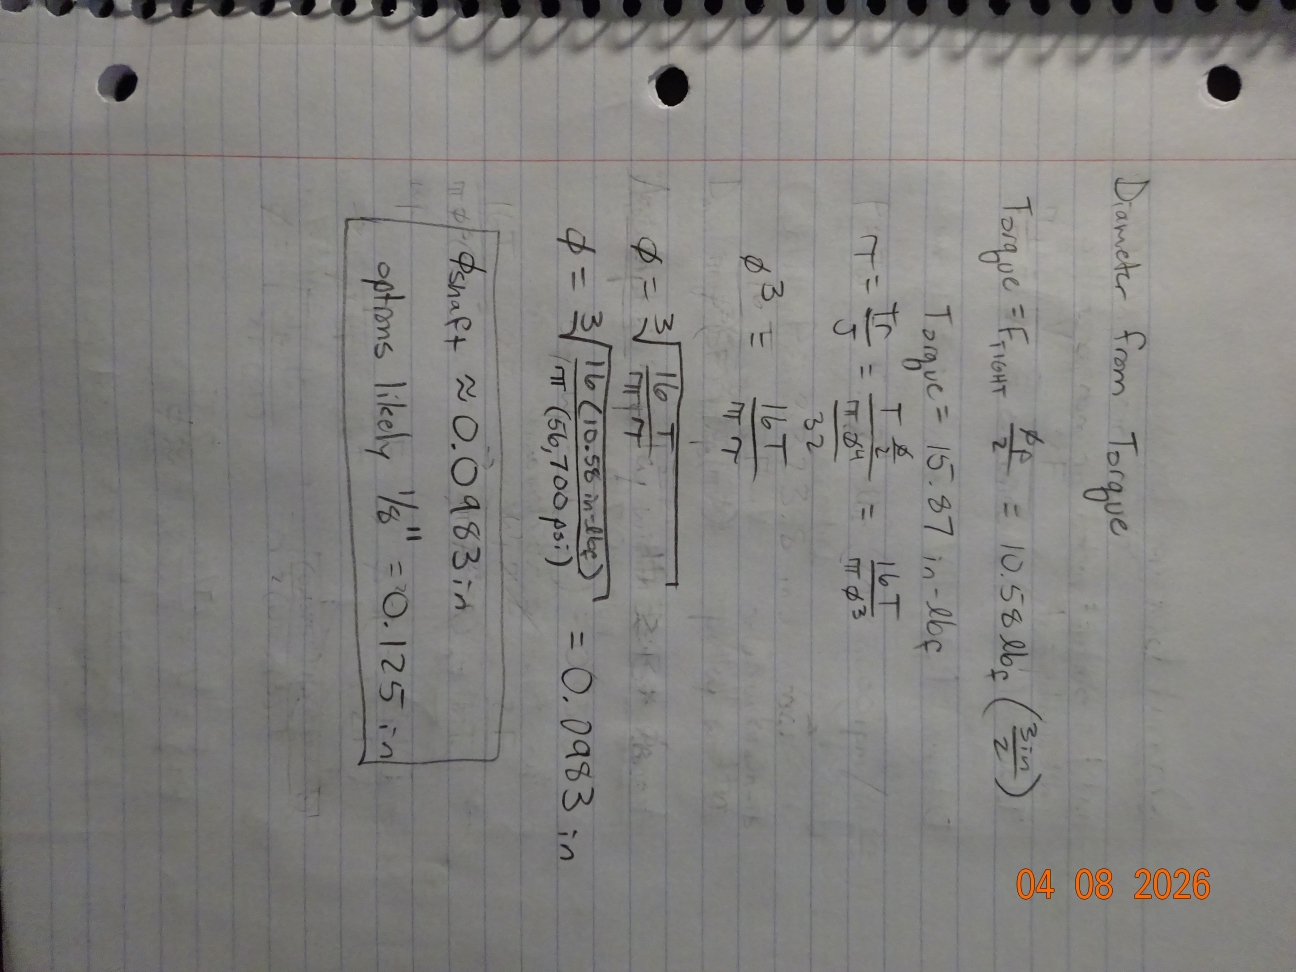 Diameter from Torque
Torque = F_TIGHT ϕ_P/2 = 10.58 lb_f (3in/2)
Torque = 15.87 in-lb_f
τ = Tr/J = (T ϕ/2)/(πϕ⁴/32) = 16T/πϕ³
ϕ³ = 16T/πτ
ϕ = ∛(16T/πτ)
ϕ = ∛(16(10.58 in-lb_f)/π(56,700 psi)) = 0.0983 in
ϕ_shaft ≈ 0.0983in
options likely 1/8" = 0.125 in
04 08 2026